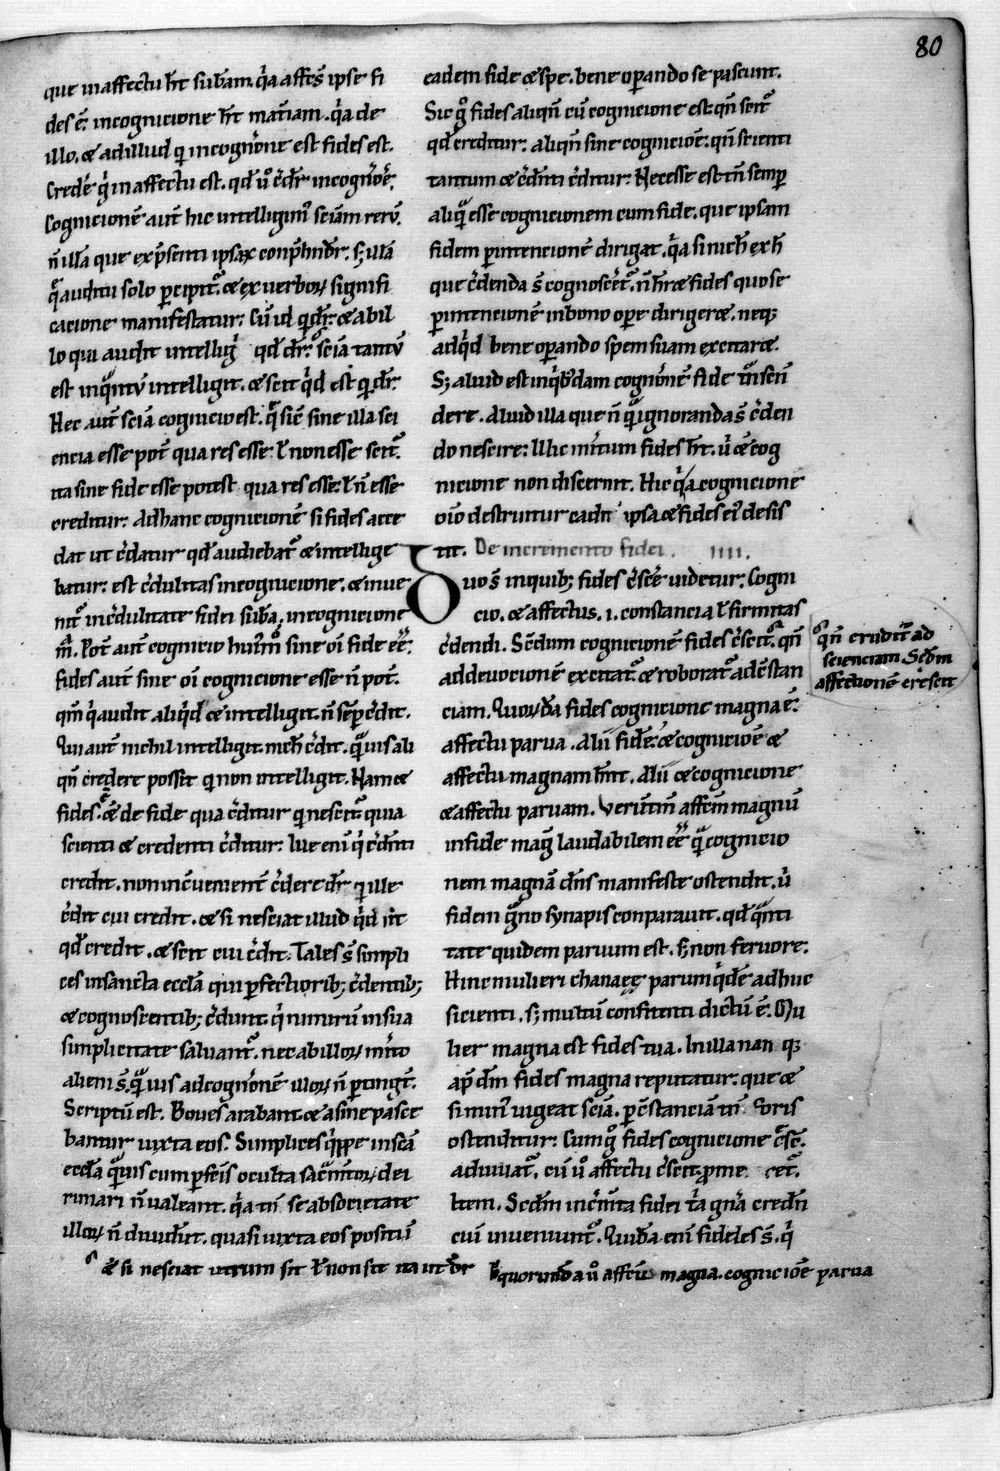 80
que in affectu hn̄t sub̄am. q̇a affc̄s ipse fi
des ē. in cognicione hn̄t matiam. q̇a de
illo. & ad illud q̇ in cogniōne est fides est.
Crede q̇ in affectu est. qd̄ u̇o c̄dr in cogniōe.
Cognicionē aut̄ hic intelligim̄ sciam rerū.
n̄ illa que exp̄senti ipsaꝝ conp̄hndr̄. s; illā
q̄ auditu solo p̄cipit᷑. & ex uerboꝝ signifi
cacione manifestatur. Cū id q̇ dr̄. & ab il
lo qui audit intelligi qd̄ dr̄. scia tantū
est inq̄ntū intelligit. & scit q̇d est q̇ dr̄.
Hec aut̄ scia cognicio est. q̄ sic̄ sine illa sci
encia esse pot̄ qua res esse ł non esse scit᷑.
ita sine fide esse potest qua res esse ł n̄ esse
creditur. Ad hanc cognicionē si fides acce
dat ut c̄datur qd̄ audiebat᷑ & intellige
batur. est c̄dulitas in cognicione. & inue
nit᷑ in c̄dulitate fidei sub̄a, in cognicione
m̄. Pot̄ aut̄ cognicio hui᷑mōi sine oi fide ēē.
fides aut̄ sine oi cognicione esse n̄ pot̄.
qm̄ q̇ audit aliq̇d & intelligit. n̄ semp̄ c̄dit.
Qui aut̄ nichil intelligit. nich̄ c̄dit. q̄uis ali
qn̄ credere possit q̇ non intelligit. Nam &
fides. ēē de fide qua c̄ditur q̇ nescit᷑ quia
scienti & credenti c̄ditur. Iure eni q̇ c̄denti
credit. non inc̄ueniēnt c̄dere dr̄ q̇ ille
c̄dit cui credit. & si nesciat illud q̇d sit
qd̄ credit. & scit cui c̄dit. Tales s̄ simpli
ces in sancta eccl̄a qui p̄fectiorib; c̄dentib;
& cognoscentib; c̄dunt q̇ nimirū in sua
simplicitate saluant᷑. nec ab illoꝝ m̄ito
alieni s̄. q̄uis ad cogniōnē illoꝝ n̄ p̄tingt̄.
Scriptū est. Boues arabant & asine pasce
bantur iuxta eos. Simplices q̇ppe in scā
eccl̄a q̄uis cum p̄fcis oculta sac̄mtoꝝ dei
rimari n̄ ualeant. q̇a tn̄ se ab societate
illoꝝ n̄ diuidūt. quasi iuxta eos positi
& si nesciat utrum sit ł non sit ita ut dr̄
eadem fide & spe. bene operando se pascunt.
Sic g̊ fides aliqn̄ cū cognicione est. qn̄ scit᷑
qd̄ creditur. aliqn̄ sine cogniciōe. qn̄ scienti
tantum & c̄denti c̄ditur. Necesse est tn̄ semp̄
aliq̄ esse cognicionem cum fide. que ipsam
fidem p̄ intencionē dirigat. q̇a si nich̄ ex h̄
que c̄denda s̄ cognosc̄et᷑. n̄ h̄ret fides quo se
p̄ intencionē in bono ope dirigeret. neq;
ad q̇d bene op̄ando spem suam excitaret.
S; aliud est in q̇b;dam cogniōnē fide t᷑nscen
dere. Aliud illa que n̄ q̄ ignoranda s̄ c̄den
do nescire. Illic m̄itum fides h̄t. u̇ & cog
nicione non discernit. Hic q̇a cognicione
oīo destruitur cadit ipsa & fides ei᷑ desis
tit. De incremento fidei. IIII.
Duob; s̄ in quib; fides c̄scere uidetur. Cogni
cio. & affectus. i. constancia ł firmitas
c̄dendi. Scdm cognicionē fides c̄scit᷑. qn̄
ad deuocionē excitat᷑ & roborat᷑ ad c̄stan
ciam. Quoꝝd̄a fides cognicione magna ē.
affectu parua. Alii fidē & cogniciōe &
affectu magnam hn̄t. Alii & cognicione
& affectu paruam. Verūtm̄ affc̄m magnū
in fide mag̊ laudabilem ēē q̄ cognicio
nem magnā dn̄s manifeste ostendit. u̇
fidem g̊no synapis conparauit. qd̄ q̄nti
tate quidem paruum est. s; non feruore.
Hinc mulieri chananeę parum q̇de adhuc
scienti. s; multū confitenti dictū ē. Mu
lier magna est fides tua. In illa nan q;
ap̄ dm̄ fides magna reputatur. que &
si min᷑ uigeat scia. p̄ c̄stanciā tn̄ foris
ostenditur. Cum g̊ fides cognicione c̄sc̄.
adiuuat᷑. cū u̇o affectu c̄scit. p̄met.
ltem. Scdm inc̄mta fidei t᷑a gn̄a credn̄
cium inueniunt᷑. Quida eni fideles s̄. q̇
quorunda u̇o affcū magna. cogniciōe parua
qn̄ erudit᷑ ad
scienciam. Scdm
affectionē crescit